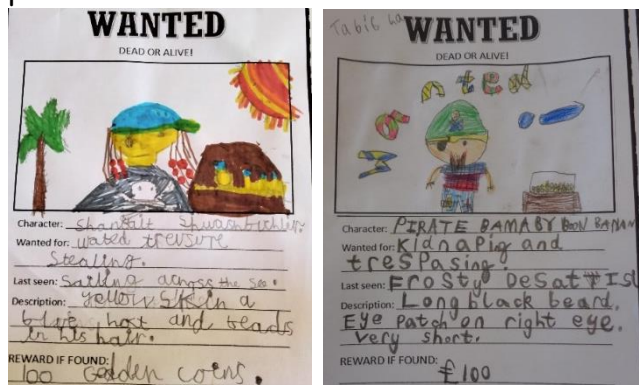 WANTED
DEAD OR ALIVE!
Character:
Wanted for: wated treusure
Stealing.
Last seen: Sailing across the Sea.
Description: yellow Skein a
blue hat and beads
in his hair.
REWARD IF FOUND:
100 Golden coins.
WANTED
DEAD OR ALIVE!
Character: PIRATE BAMABY
Wanted for: Kidnaping and
tresPasing.
Last seen: Frosty
Description: Long black beard.
Eye Patch on right eye.
Very short.
REWARD IF FOUND:
£100